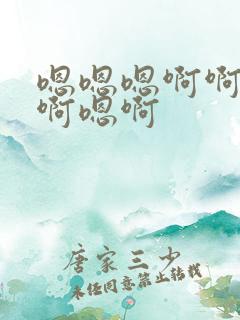 嗯嗯嗯啊啊
啊嗯啊
唐家三少
未经同意禁止转载